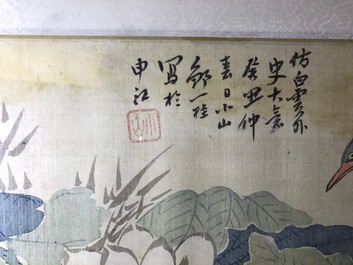 仿白雲外
史大意
癸丑仲
春日小山
鄒一桂
寫於
申江